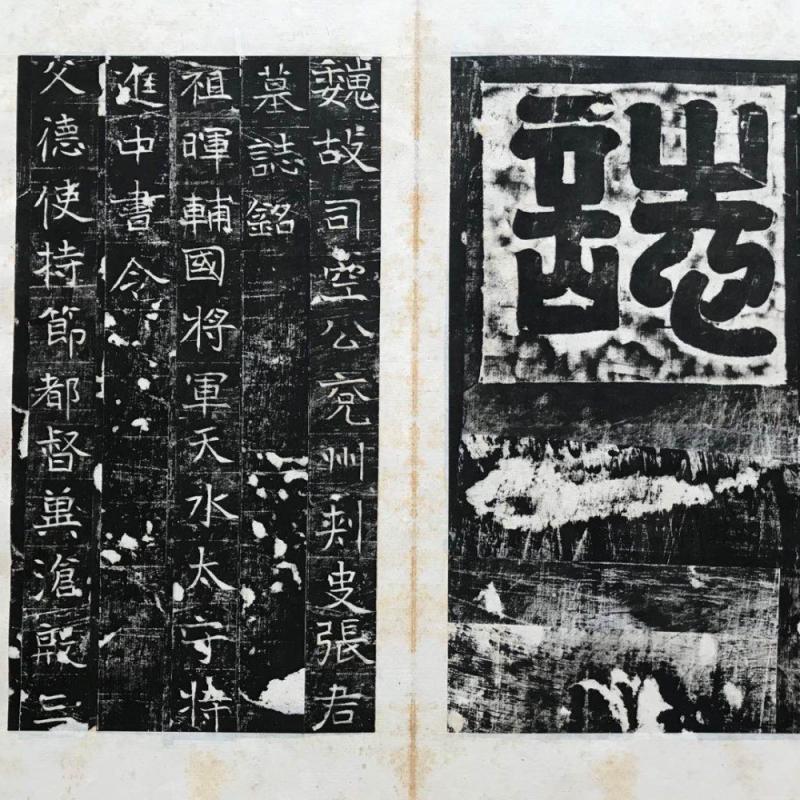 魏故司空公兗州刺史張君
墓誌銘
祖暉輔國將軍天水太守特
進中書令
父德使持節都督冀滄殷三